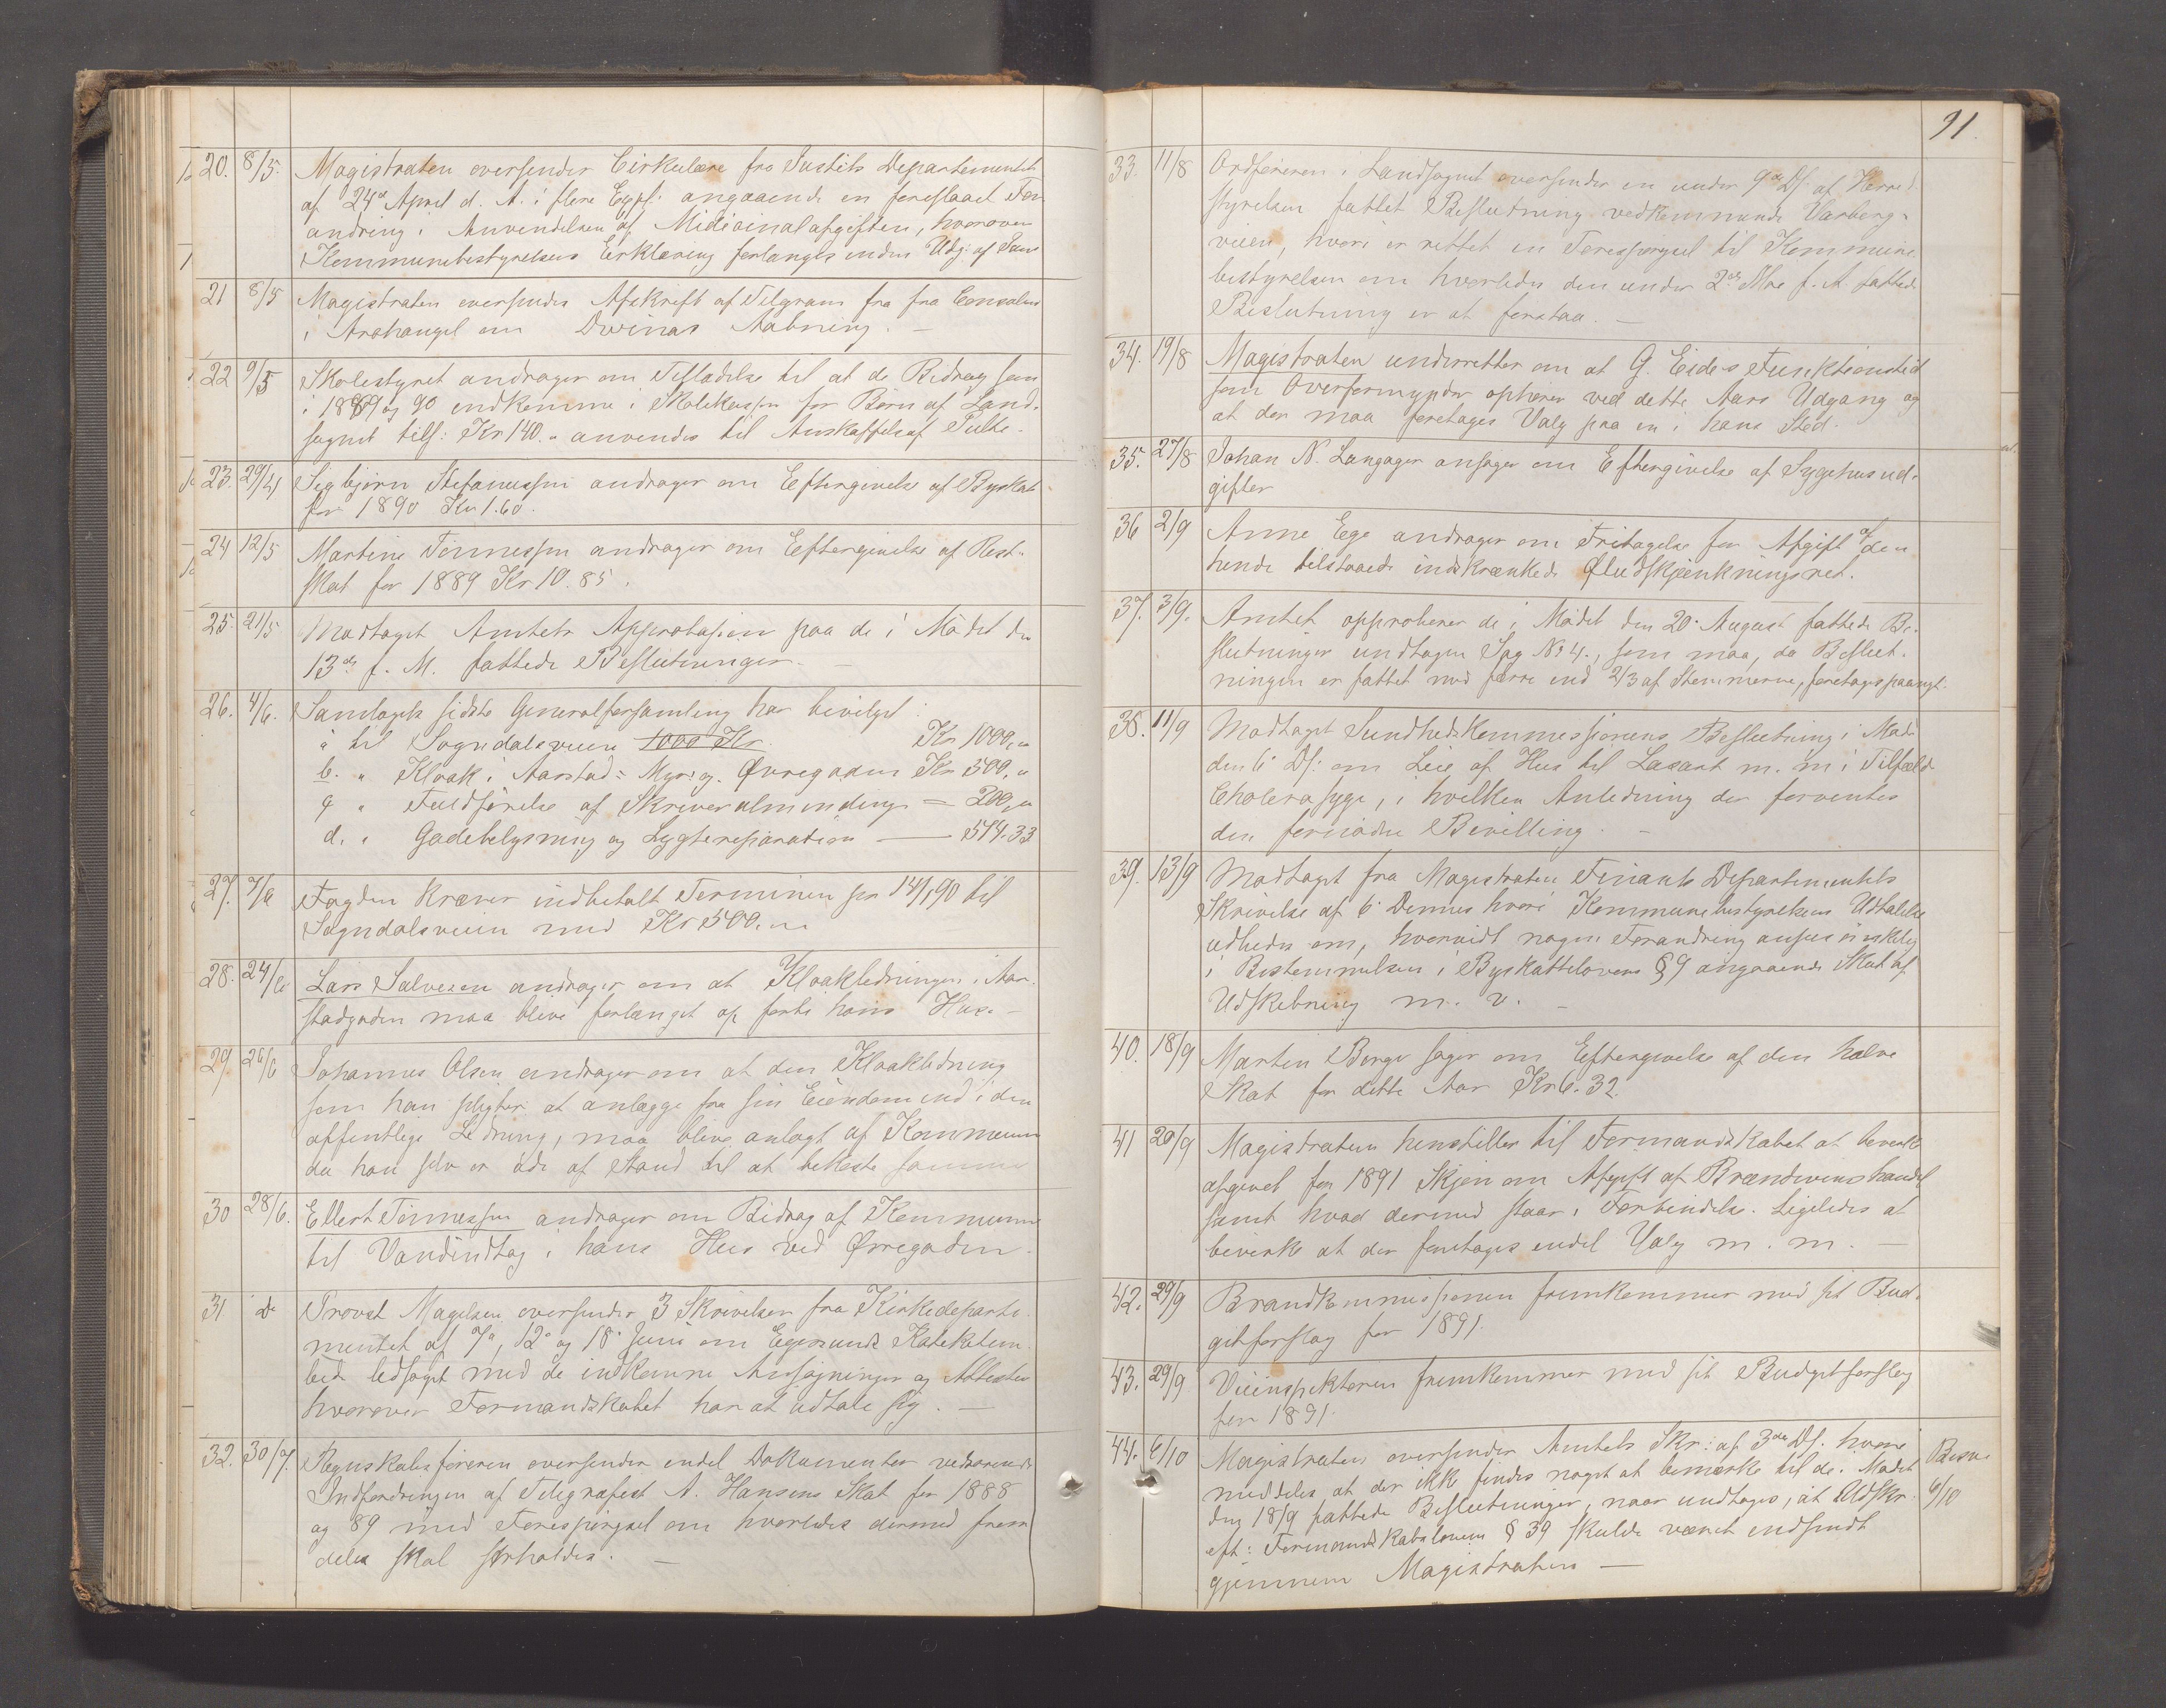 20. 8/5. Magistraten oversender Cirkulære fra Justits Departementet
af 24de April d. A. i flere Expl: angaaende en foreslaaet For
andring i Anvendelsen af Midicinalafgiften, hvorover
Kommunebestyrelsens Erklæring forlanges inden Udg: af Juni
21 8/5 Magistraten oversender Afskrift af Telgram fra fra Consulen
i Archangel om Dwinas Aabning. —
22 9/5 Skolestyret andrager om Tilladelse til at de Bidrag som
i 1889 og 90 indkomme i Skolekassen for Børn af Land-
sognet tils: Kr 140.„ anvendes til Anskaffelse af Pulte.
23. 29/4 Sigbjørn Stefanussen andrager om Eftergivelse af Byskat
for 1890 Kr 1.60.
24 12/5 Martine Tønnessen andrager om Eftergivelse af Rest-
skat for 1889 Kr 10.85.
25. 21/5 Modtaget Amtets Approbasion paa de i Mødet den
13de f. M. fattede Beslutninger. —
26. 4/6. Samlagets sidste Generalforsamling har bevilget:
a til Sogndalsveien 1000 Kr. Kr 1000,„
b. „ Kloak i Aarstad- Myr. og Øvregaden Kr 500,„
c „ Fuldførelse af Skriveralmindinge — 200,„
d. „ Gadebelysning og Lygtereparation — 544.33
27. 7/6 Fogden kræver indbetalt Terminen pr 14/1 90 til
Sogndalsveien med Kr 500.„
28. 24/6 Lars Salvesen andrager om at Kloakledningen i Aar-
stadgaden maa blive forlænget op forbi hans Hus. —
29 26/6 Johannes Olsen andrager om at den Kloakledning
som han pligter at anlægge fra sin Eiendom ind i den
offentlige Ledning, maa blive anlagt af Kommunen
da han selv er ude af Stand til at bekoste samme
30 28/6. Ellert Tønnessen andrager om Bidrag af Kommunen
til Vandindtag i hans Hus ved Øvregaden.
31 Do Provst Magelsen oversender 3 Skrivelser fra Kirkedeparte-
mentet af 7de, 12de og 18de Juni om Egersunds Kateketem-
bede ledsaget med de indkomne Ansøgninger og Attester
hvorover Formandskabet har at udtale sig. —
32. 30/7. Regnskabsføreren oversender endel Dokumenter vedrørende
Indfordringen af Telegrafist A. Hansens Skat for 1888
og 89 med Forespørgsel om hvorledes dermed frem
deles skal forholdes. —
91.
33. 11/8 Ordføreren i Landsognet oversender en under 9de Ds. af Herreds
styrelsen fattet Beslutning vedkommende Varberg-
veien, hvori er rettet en Forespørgsel til Kommune-
bestyrelsen om hvorledes den under 2den Mai f. A. fattede
Beslutning er at forstaa. —
34. 19/8 Magistraten underretter om at G. Eides Funktionstid
som Overformynder ophører ved dette Aars Udgang og
at der maa foretages Valg paa en i hans Sted.
35. 27/8 Johan N. Langager ansøger om Eftergivelse af Sygehusud-
gifter
36 2/9 Anne Ege andrager om Fritagelse for Afgift af den
hende tilstaaede indskrænkede Øludskjænkningsret.
37. 3/9. Amtet approberer de i Mødet den 20de August fattede Be-
slutninger undtagen Sag No 4., som maa, da Beslut-
ningen er fattet med færre end 2/3 af Stemmerne, foretages paanyt.
38. 11/9 Modtaget Sundhedskommissionens Beslutning i Møde
den 6te Ds: om Leie af Hus til Lasaret m. m i Tilfælde
Cholerasyge, i hvilken Anledning der forventes
den fornødne Bevilling. —
39. 13/9 Modtaget fra Magistraten Finants Departementets
Skrivelse af 6te Dennes hvori Kommunebestyrelsens Udtalelse
udbedes om, hvorvidt nogen Forandring ansees ønskelig
i Bestemmelsen i Byskattelovens § 9 angaaende Skat af
Udskibning m. v. —
40. 18/9 Martin Berge søger om Eftergivelse af den halve
Skat for dette Aar Kr 6.32.
41 20/9 Magistraten henstiller til Formandskabet at bevirke
afgivet for 1891 Skjøn om Afgift af Brændevinshandel
samt hvad dermed staar i Forbindelse. Ligeledes at
bevirke at der foretages endel Valg m. m. —
42. 29/9 Brandkommissionen fremkommer med sit Bud-
getforslag for 1891.
43. 29/9 Veiinspektøren fremkommer med sit Budgetforslag
for 1891.
44. 6/10 Magistraten oversender Amtets Skr: af 3die Ds. hvori
meddeles at der ikke findes noget at bemærke til de i Mødet
den 18/9 fattede Beslutninger, naar undtages, at Udskr.
eft: Formandskabsloven § 39 skulde været indsendt
gjennem Magistraten —
Besv. 6/10